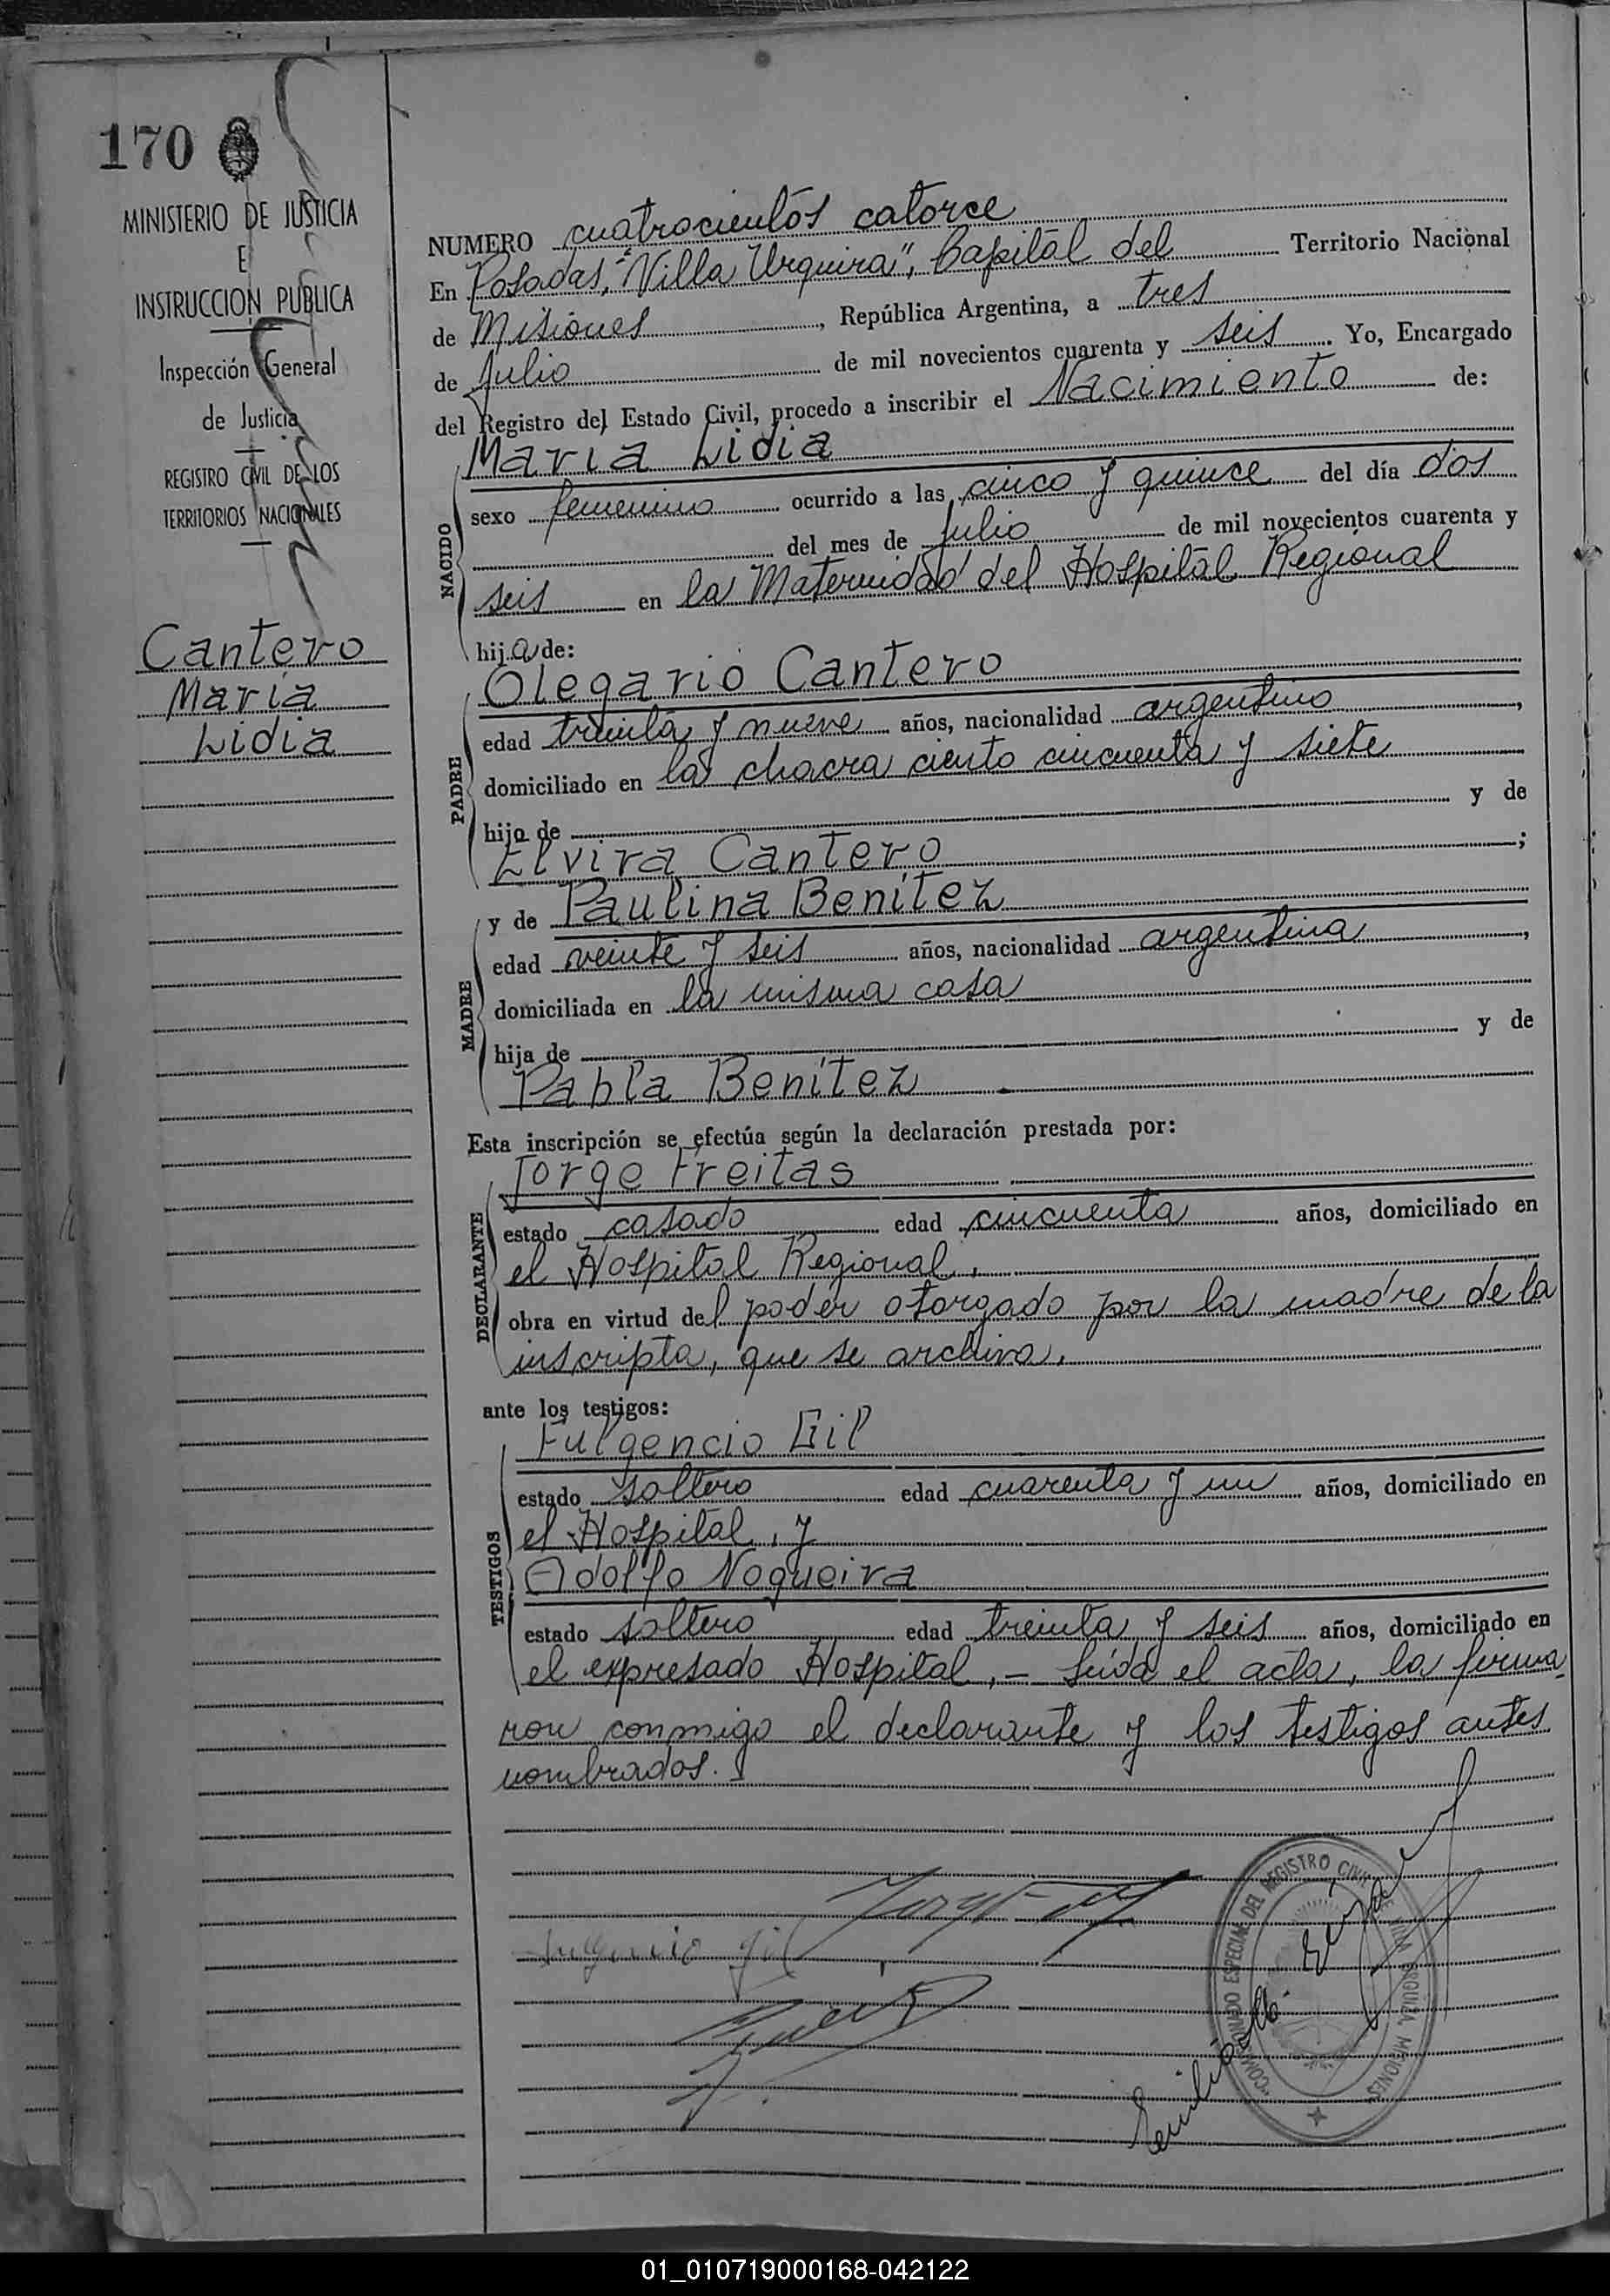 170
MINISTERIO DE JUSTICIA
E
INSTRUCCION PUBLICA
Inspección General
de Justicia
REGISTRO CIVIL DE LOS
TERRITORIOS NACIONALES
Cantero
María
Lidia
NUMERO cuatrocientos catorce
En Posadas, "Villa Urquiza", Capital del Territorio Nacional
de Misiones, República Argentina, a tres
de Julio de mil novecientos cuarenta y seis. Yo, Encargado
del Registro del Estado Civil, procedo a inscribir el Nacimiento de:
NACIDO
María Lidia
sexo femenino ocurrido a las cinco y quince del día dos
del mes de Julio de mil novecientos cuarenta y
seis en la Maternidad del Hospital Regional
hija de:
PADRE
Olegario Cantero
edad treinta y nueve años, nacionalidad argentino,
domiciliado en la chacra ciento cincuenta y siete
hijo de y de
Elvira Cantero;
MADRE
y de Paulina Benítez
edad veinte y seis años, nacionalidad argentina,
domiciliada en la misma casa
hija de y de
Pabla Benítez
Esta inscripción se efectúa según la declaración prestada por:
DECLARANTE
Jorge Freitas
estado casado edad cincuenta años, domiciliado en
el Hospital Regional,
obra en virtud del poder otorgado por la madre de la
inscripta, que se archiva.
ante los testigos:
TESTIGOS
Fulgencio Gil
estado soltero edad cuarenta y un años, domiciliado en
el Hospital, y
Adolfo Nogueira
estado soltero edad treinta y seis años, domiciliado en
el expresado Hospital,- Leída el acta, la firma-
ron conmigo el declarante y los testigos antes
nombrados.
Fulgencio Gil
COMISIONADO ESPECIAL DEL REGISTRO CIVIL DE VILLA URQUIZA MISIONES
01_010719000168-042122